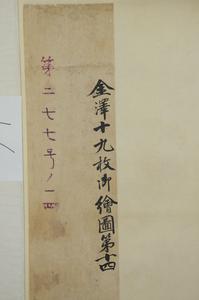 金澤十九枚御繪圖第十四
第二七七号ノ一四